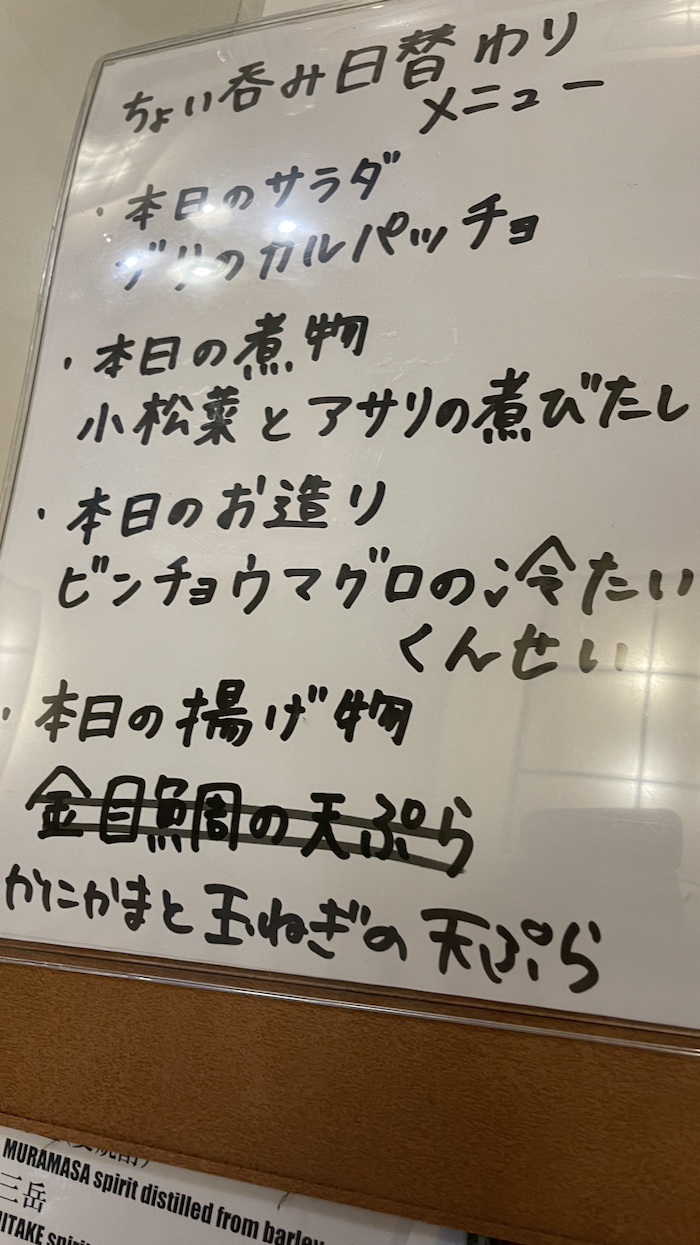 ちょい呑み日替わり
メニュー
・本日のサラダ
ブリのカルパッチョ
・本日の煮物
小松菜とアサリの煮びたし
・本日のお造り
ビンチョウマグロの冷たい
くんせい
・本日の揚げ物
金目鯛の天ぷら
かにかまと玉ねぎの天ぷら
MURAMASA spirit distilled from barley
三岳